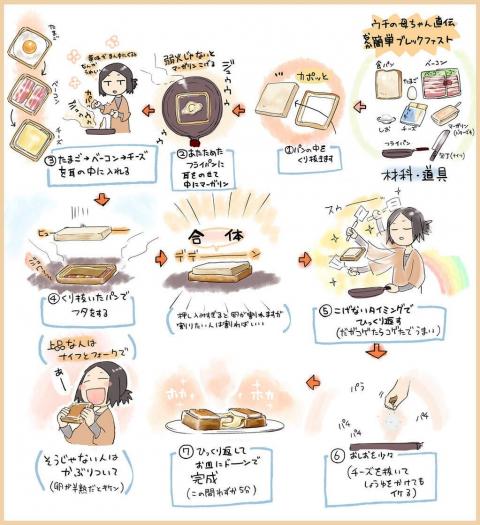 ウチの母ちゃん直伝
簡単ブレックファスト
食パン
たまご
ベーコン
しお
チーズ
マーガリン
フライパン
包丁(ナイフ)
材料・道具
カポッと
①パンの中を
くり抜きます
弱火じゃないと
マーガリンこげる
ジュウゥゥ
②あたためた
フライパンに
耳をのせて
中にマーガリン
たまご
ベーコン
チーズ
③たまご→ベーコン→チーズ
を耳の中に入れる
ヒュー
④くり抜いたパンで
フタをする
合体
デデーーン
押し込みすぎると卵が割れますが
割りたい人は割ればいい
⑤こげないタイミングで
ひっくり返す
(だがコゲたらコゲたでうまい)
パラ
パチ
パチ
パチ
⑥おしおを少々
(チーズを抜いて
しょうゆをかけても
イケる)
ホカ
ホカ
⑦ひっくり返して
お皿にドーンで
完成
(この間わずか5分)
上品な人は
ナイフとフォークで
あー
そうじゃない人は
かぶりついて
(卵が半熟だとキケン)